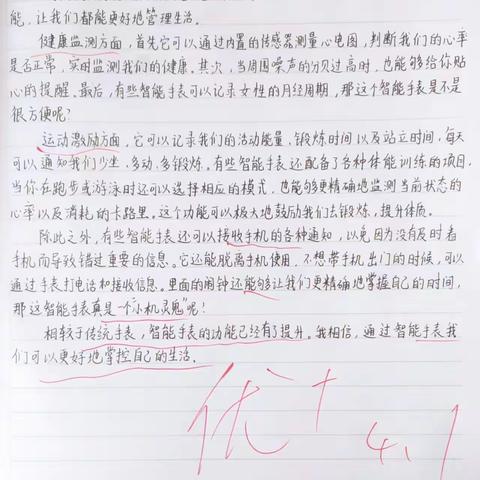 能，让我们都能更好地管理生活。
健康监测方面，首先它可以通过内置的传感器测量心电图，判断我们的心率
是否正常，实时监测我们的健康。其次，当周围噪声的分贝过高时，也能够给你贴
心的提醒。最后，有些智能手表可以记录女性的月经周期，那这个智能手表是不是
很方便呢？
运动激励方面，它可以记录我们的活动能量、锻炼时间以及站立时间，每天
可以通知我们少坐、多动、多锻炼。有些智能手表还配备了各种体能训练的项目，
当你在跑步或游泳时还可以选择相应的模式，也能够更精确地监测当前状态的
心率以及消耗的卡路里。这个功能可以极大地鼓励我们去锻炼，提升体质。
除此之外，有些智能手表还可以接收手机的各种通知，以免因为没有及时看
手机而导致错过重要的信息。它还能脱离手机使用，不想带手机出门的时候，可以
通过手表打电话和接收信息。里面的闹钟还能够让我们更精确地掌握自己的时间，
那这智能手表真是一个“小机灵鬼”呢！
相较于传统手表，智能手表的功能已经有了提升。我相信，通过智能手表我
们可以更好地掌控自己的生活。
优＋
4.1